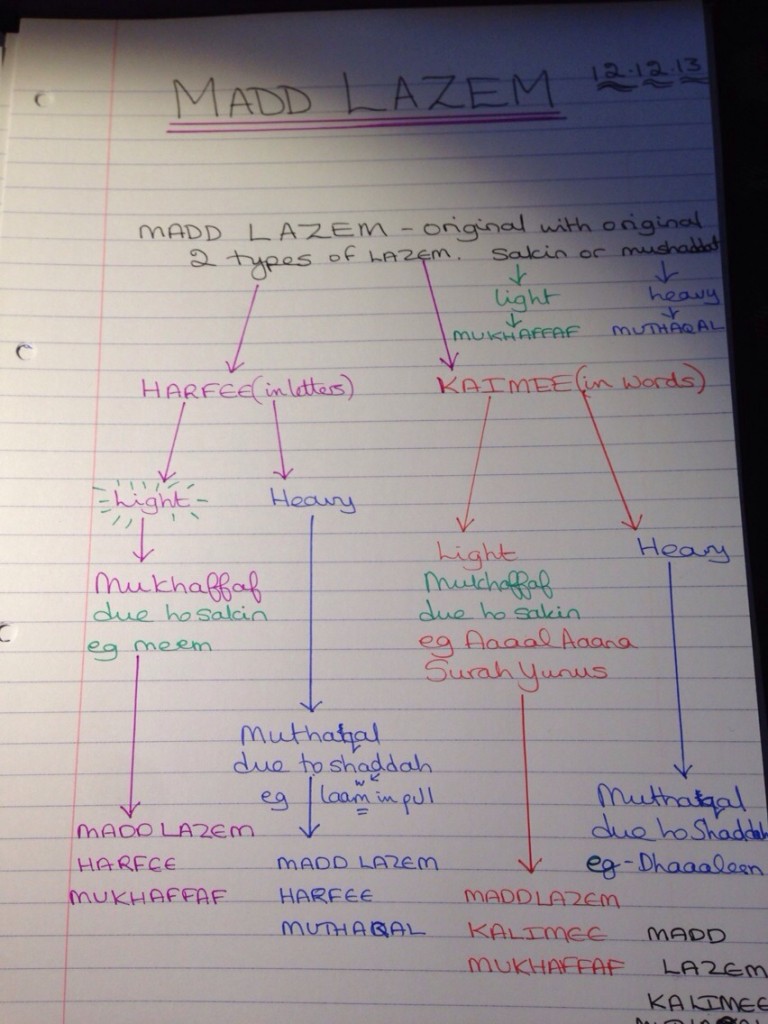 MADD LAZEM
12.12.13
MADD LAZEM - original with original
2 types of LAZEM. sakin or mushaddat
light heavy
MUKHAFFAF MUTHAQAL
HARFEE (in letters) KAIMEE (in words)
Light Heavy
Light Heavy
Mukhaffaf
due to sakin
eg meem
Mukhaffaf
due to sakin
eg Aaaal Aaana
Surah Yunus
Muthaqal
due to shaddah
eg laam in
Muthaqal
due to Shaddah
eg - Dhaaaleen
MADD LAZEM
HARFEE
MUKHAFFAF
MADD LAZEM
HARFEE
MUTHAQAL
MADD LAZEM
KALIMEE
MUKHAFFAF
MADD
LAZEM
KALIMEE